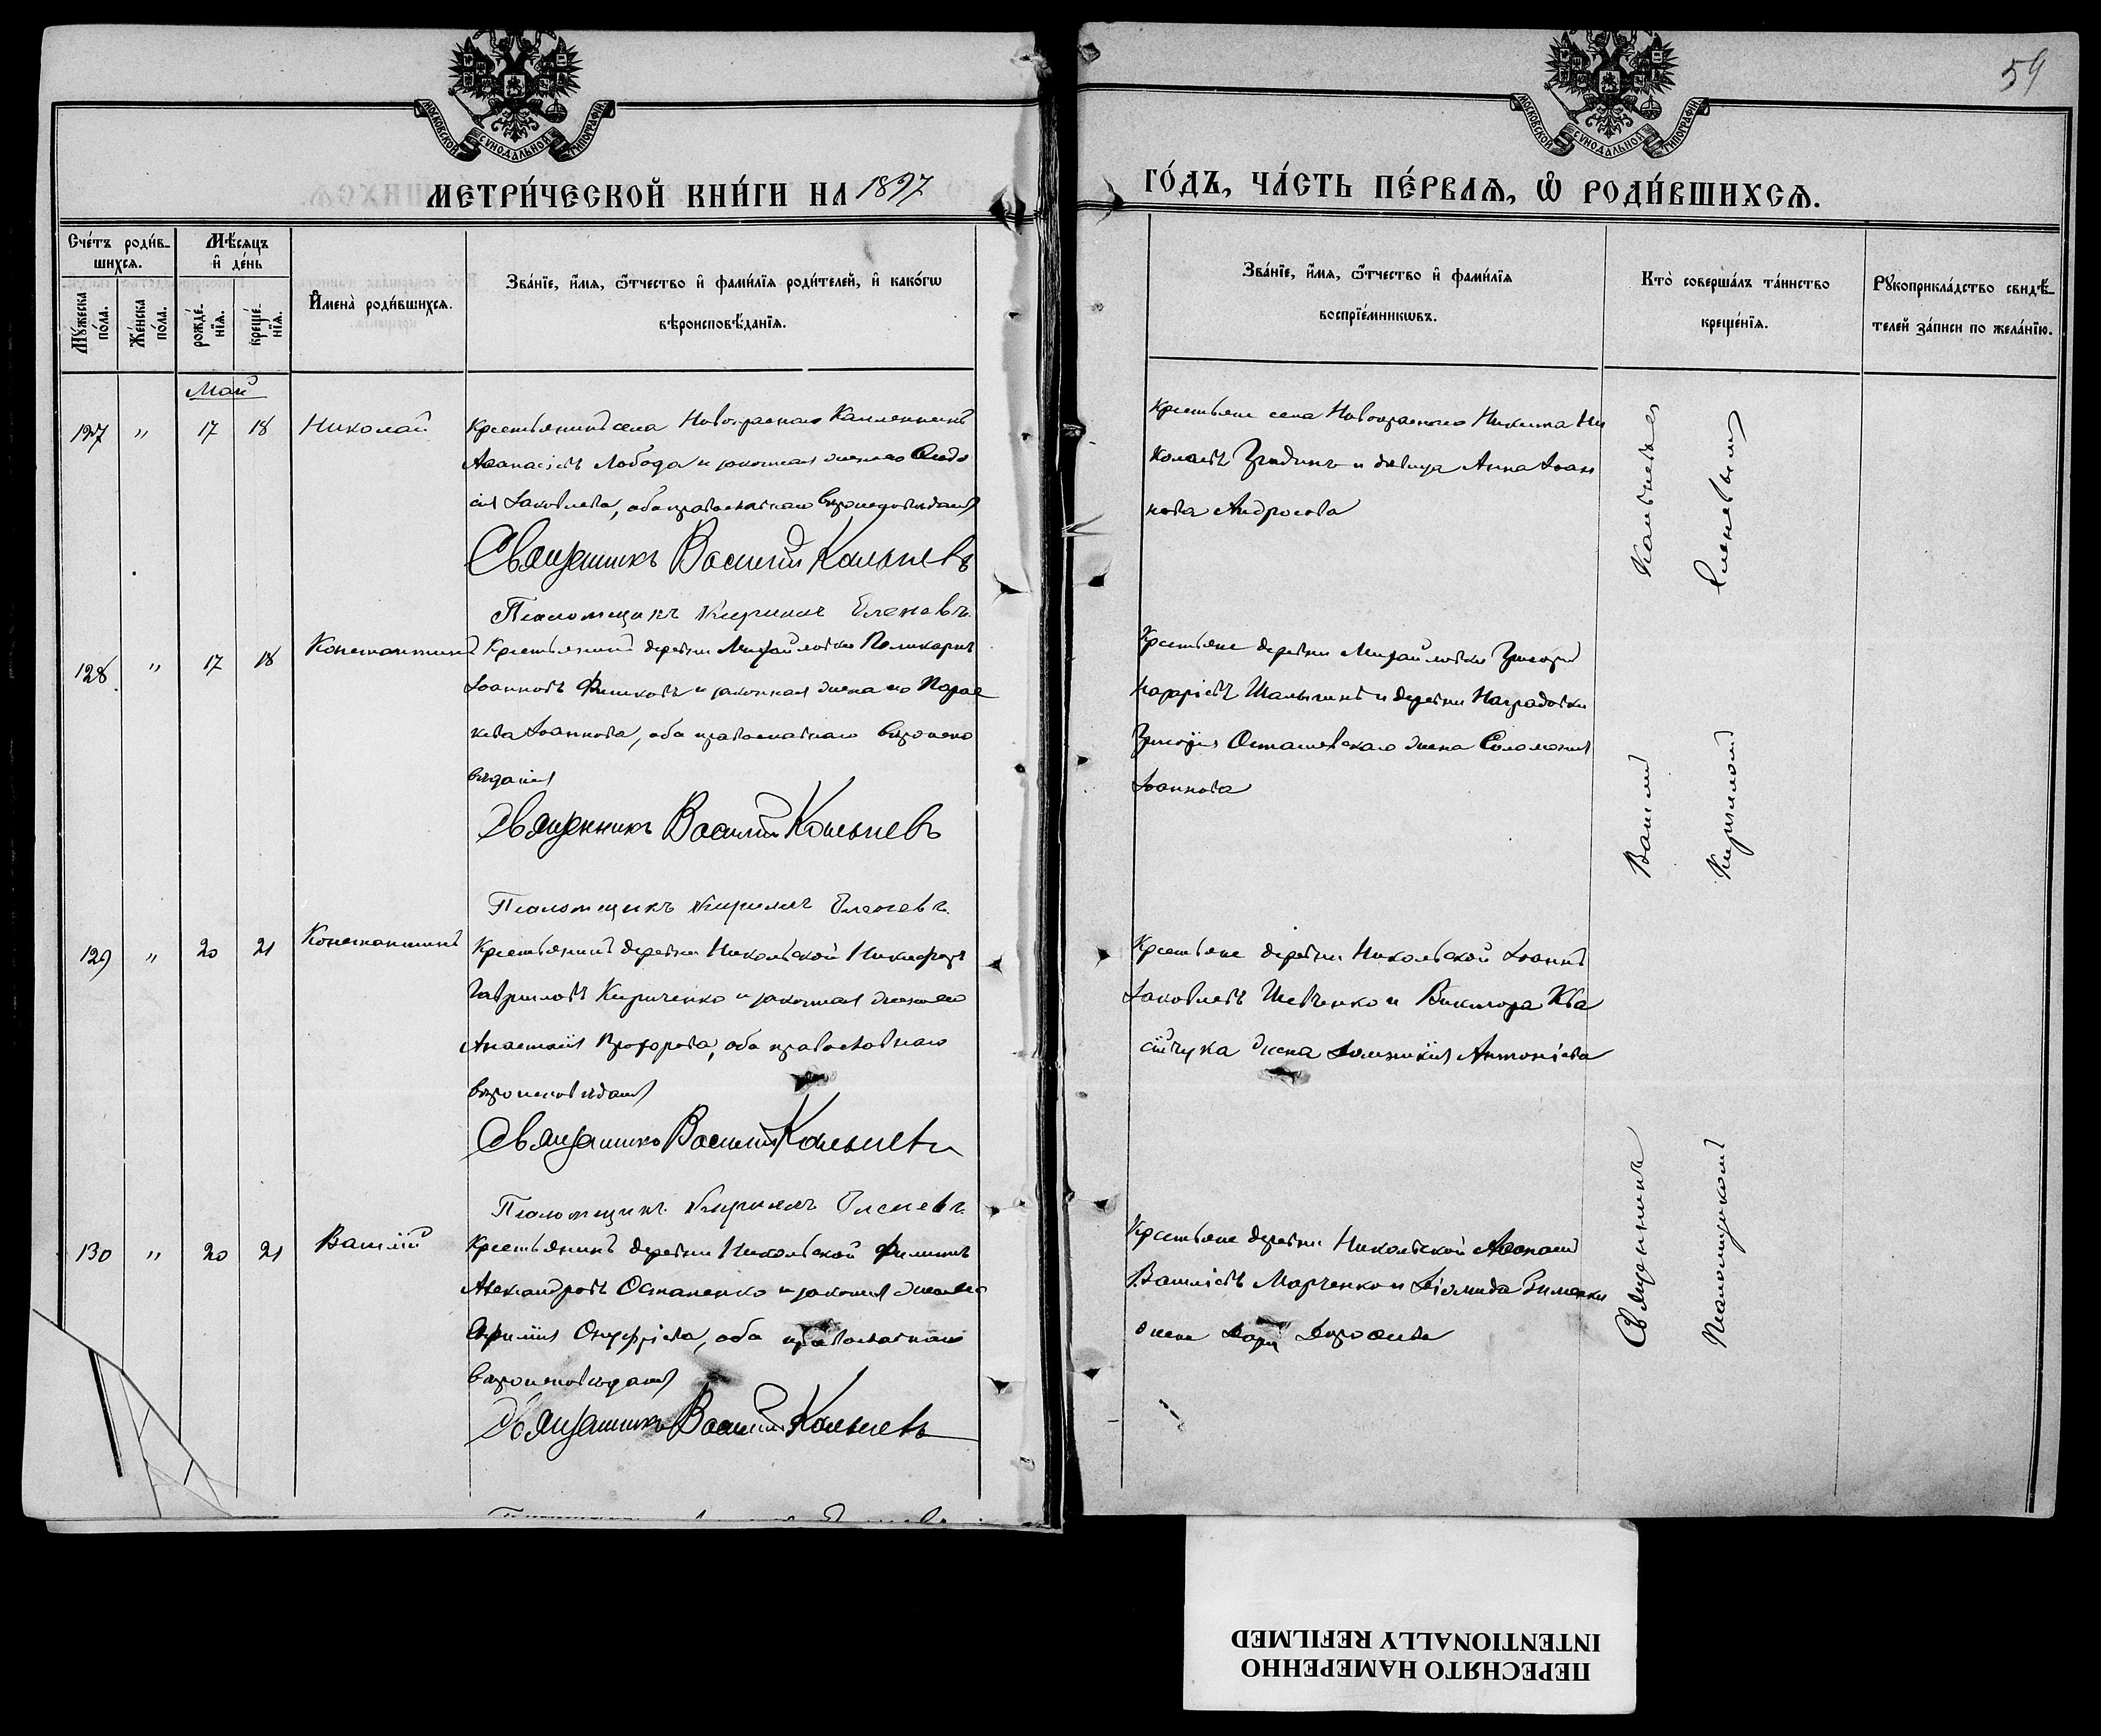 МОСКОВСКОЙ СѴНОДАЛЬНОЙ ТИПОГРАФІИ
МЕТРИ́ЧЕСКОЙ КНИ́ГИ НА 1897
Сче́тъ роди́в-
шихсѧ.
Мѣ́сѧцъ
и҆ де́нь
Мꙋ́жеска
по́ла.
Же́нска
по́ла.
рожде́-
нїѧ.
креще́-
нїѧ.
И҆мена̀ роди́вшихсѧ.
Зва́нїе, и҆́мѧ, ѻ҆́тчество и҆ фами́лїѧ роди́телей, и҆ како́гѡ
вѣроисповѣ́данїѧ.
Май
127 " 17 18 Николай
Крестьянинъ села Новокраснаго
Аѳанасіевъ Лобода и законная жена его Ѳеодо
сія Іаковлева, оба православнаго вѣроисповѣданія
Священникъ Василій
Псаломщикъ Кириллъ Еленевъ.
128 " 17 18 Константинъ
Крестьянинъ деревни Михайловки Поликарпъ
Іоанновъ и законная жена его Парас
кева Іоаннова, оба православнаго вѣроиспо
вѣданія
Священникъ Василій
Псаломщикъ Кириллъ Еленевъ.
129 " 20 21 Константинъ
Крестьянинъ деревни Никольской Никифоръ
Гавриловъ Кириченко и законная жена его
Анастасія Прохорова, оба православнаго
вѣроисповѣданія
Священникъ Василій
Псаломщикъ Кириллъ Еленевъ.
130 " 20 21 Василій
Крестьянинъ деревни Никольской Филиппъ
Александровъ Остапенко и законная жена его
Евфимія Онуфріева, оба православнаго
вѣроисповѣданія
Священникъ Василій
59
МОСКОВСКОЙ СѴНОДАЛЬНОЙ ТИПОГРАФІИ
ГО́ДЪ, ЧА́СТЬ ПЕ́РВАѦ, Ѡ҆ РОДИ́ВШИХСѦ.
Зва́нїе, и҆́мѧ, ѻ҆́тчество и҆ фами́лїѧ
воспрїе́мникѡвъ.
Кто̀ соверша́лъ та́инство
креще́нїѧ.
Рꙋкоприкла́дство свидѣ́-
телей за́писи по жела́нїю.
Крестьяне села Новокраснаго Никита Ни
колаевъ и дѣвица Анна Іоан
нова Андросова
Крестьяне деревни Михайловки Григорій
Назаріевъ и деревни Наградовки
Григорія Осташевскаго жена Соломонія
Іоаннова
Крестьяне деревни Никольской Іоаннъ
Іаковлевъ Шевченко и Виктора Ква
сійчука жена Домникія Антоніева
Крестьяне деревни Никольской Аѳанасій
Василіевъ Марченко и Діомида
жена Дарія Дороѳеева
Священникъ Василій
Псаломщикомъ Кирилломъ Еленевымъ
ПЕРЕСНЯТО НАМЕРЕННО
INTENTIONALLY REFILMED